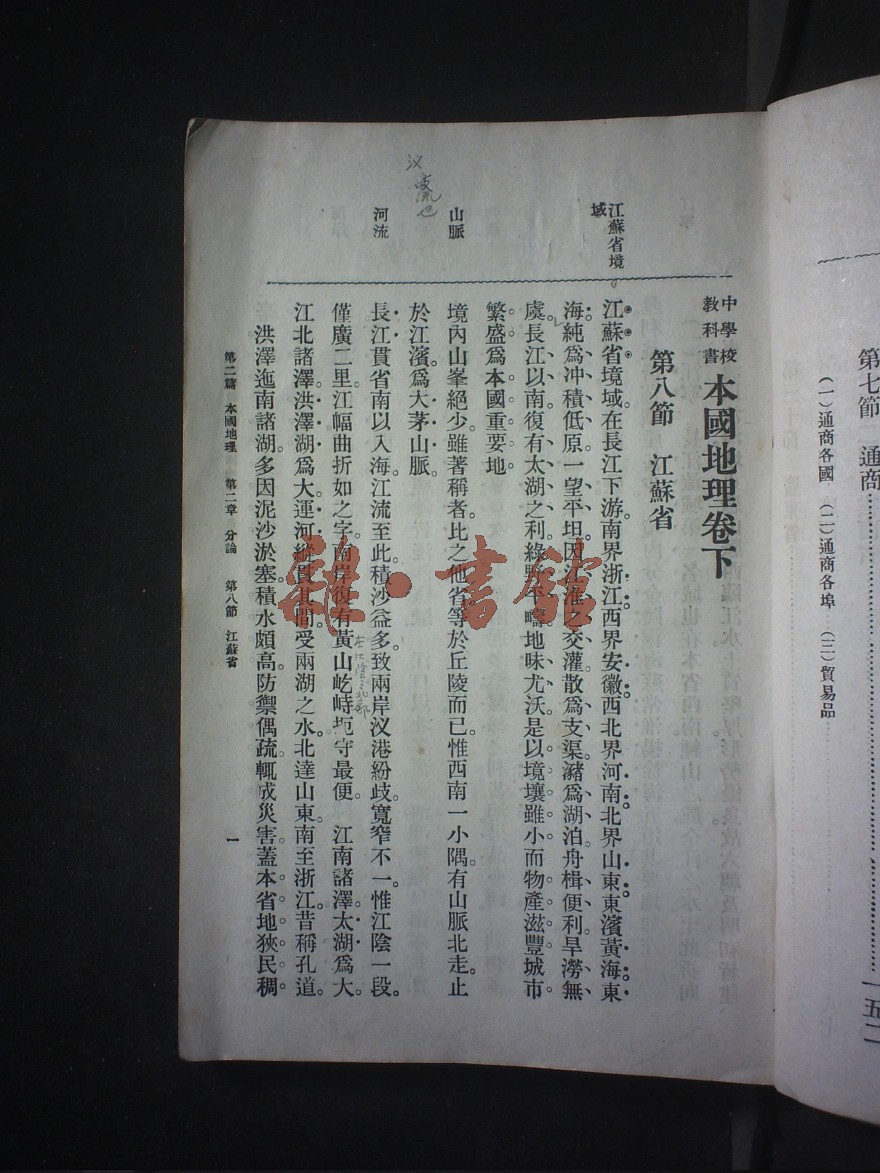 第七節　通商………………一五二
(一)通商各國　(二)通商各埠　(三)貿易品
江蘇省境
域
山脈
汊
歧流也
河流
中學校
教科書
本國地理卷下
第八節　江蘇省
江蘇省境域。在長江下游。南界浙江。西界安徽。西北界河南。北界山東。東濱黃海。東
海純爲冲積低原。一望平坦。因江淮之交灌。散爲支渠。瀦爲湖泊。舟楫便利。旱澇無
虞。長江以南。復有太湖之利。綠野平疇。地味尤沃。是以境壤雖小。而物產滋豐。城市
繁盛。爲本國重要地
境內山峯絕少。雖著稱者。比之他省。等於丘陵而已。惟西南一小隅。有山脈北走。止
於江濱。爲大茅山脈。
長江貫省南以入海。江流至此。積沙益多。致兩岸汊港紛歧。寬窄不一。惟江陰一段。
僅廣二里。江幅曲折如之字。南岸復有黃山屹峙。扼守最便。　江南諸澤。太湖爲大。
在江陰之北部
江北諸澤。洪澤湖爲大。運河縱貫其間。受兩湖之水。北達山東。南至浙江。昔稱孔道。
洪澤迤南諸湖。多因泥沙淤塞。積水頗高。防禦偶疏。輒成災害。蓋本省地狹民稠。
第二篇　本國地理　第二章　分論　第八節　江蘇省
一
雜·書館